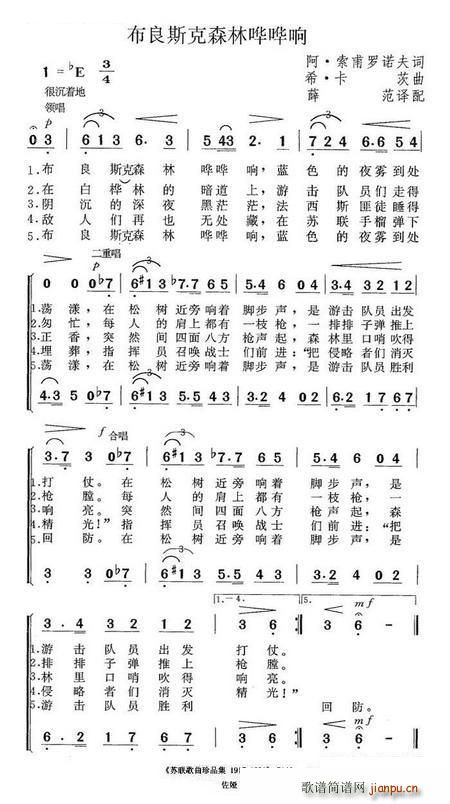 布良斯克森林哗哗响
1=♭E 3/4
阿·索甫罗诺夫词
希·卡茨曲
薛范译配
很沉着地
领唱
p
0 3 6 1 3 6·3 5 4 3 2·1 7 2 4 6·6 5 4
1.布良斯克森林哗哗响,蓝色的夜雾到处
2.在白桦林的暗道上,游击队员们走得
3.阴沉的深夜黑茫茫,法西斯匪徒睡得
4.敌人们再也无处藏,在苏联手榴弹下
5.布良斯克森林哗哗响,蓝色的夜雾到处
二重唱
p
0 0 0♭7 6♯1 3 ♭7·7 6 5 5·4 6 0 4 3·2 2 1 2 3 4
1.荡漾,在松树近旁响着脚步声,是游击队员出发
2.匆忙,每人的肩上都有一枝枪,一排排子弹推上
3.正香,突然间四面八方枪声起,森林里口哨吹得
4.埋葬,指挥员召唤战士们前进:“把侵略者们消灭
5.荡漾,在松树近旁响着脚步声,是游击队员胜利
f 合唱
3·7 3 0♭7 6♯1 3 ♭7·7 6 5 5·4 6 0 4
1.打仗。在松树近旁响着脚步声,是
2.枪膛。每人的肩上都有一枝枪,一
3.响亮。突然间四面八方枪声起,森
4.精光!”指挥员召唤战士们前进:“把
5.回防。在松树近旁响着脚步声,是
3 3 0♭7 6♯1 3 5·4 4 3 3·2 4 0 2
1.-4.
5.
mf
mf
3·2 4 1 2 3 6 3 6 - 3 6 -
1.游击队员出发打仗。
2.排排子弹推上枪膛。
3.林里口哨吹得响亮。
4.侵略者们消灭精光!”
5.游击队员胜利回防。
《苏联歌曲珍品集 191
佐娅
歌谱简谱网
jianpu.cn